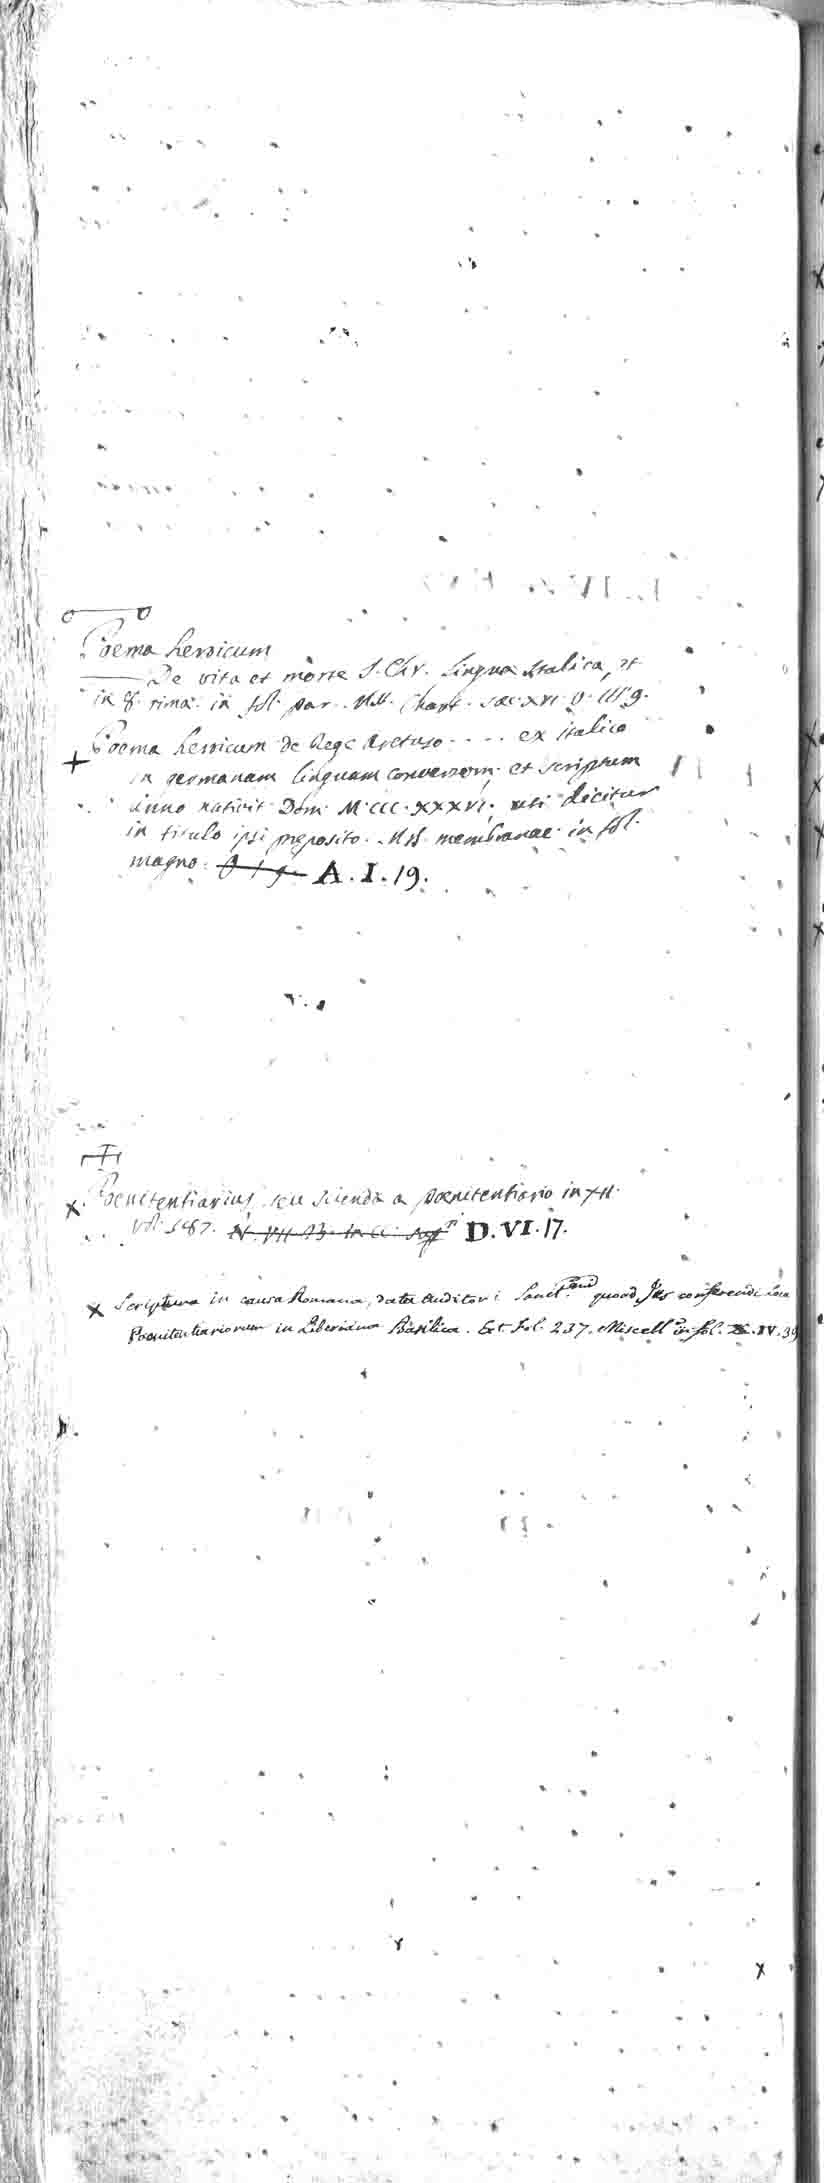 Poema heroicum
De vita et morte J. Chr. Lingua Italica, et
in 8. rima. in fol. par. MS. Chart. sæc. XVI. O. III. 9.
+ Poema heroicum de Rege Arctuso .... ex italico
in germanam linguam conversum, et scriptum
anno nativit. Dom. M.CCC.XXXVI, uti dicitur
in titulo ipsi præposito. MS. membranac. in fol.
magno. A.I.19.
x Poenitentiarius, seu scienda a pœnitentiario in XII.
Vol. D.VI.17.
x Scriptura in causa Romana, data Auditori quoad Jus conferendi loca
Poenitentiariorum in Liberiana Basilica. Ext. fol. 237. Miscell. in fol. IV. 39